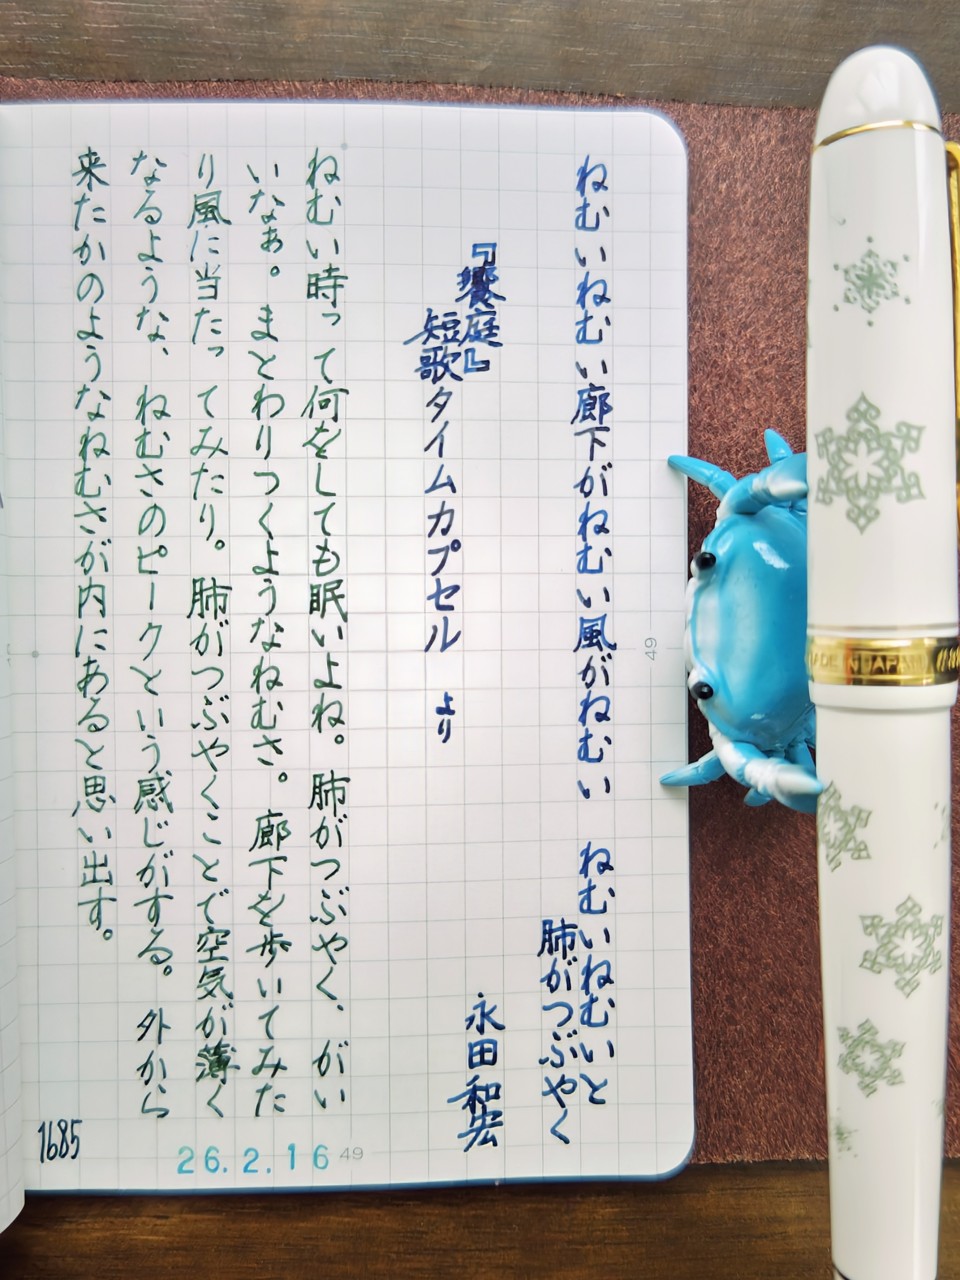 ねむいねむい廊下がねむい風がねむい ねむいねむいと
肺がつぶやく
『饗庭』
短歌タイムカプセル より
永田和宏
ねむい時って何をしても眠いよね。肺がつぶやく、がい
いなぁ。まとわりつくようなねむさ。廊下を歩いてみた
り風に当たってみたり。肺がつぶやくことで空気が薄く
なるような、ねむさのピークという感じがする。外から
来たかのようなねむさが内にあると思い出す。
1685
26.2.16
49
49
MADE IN JAPAN